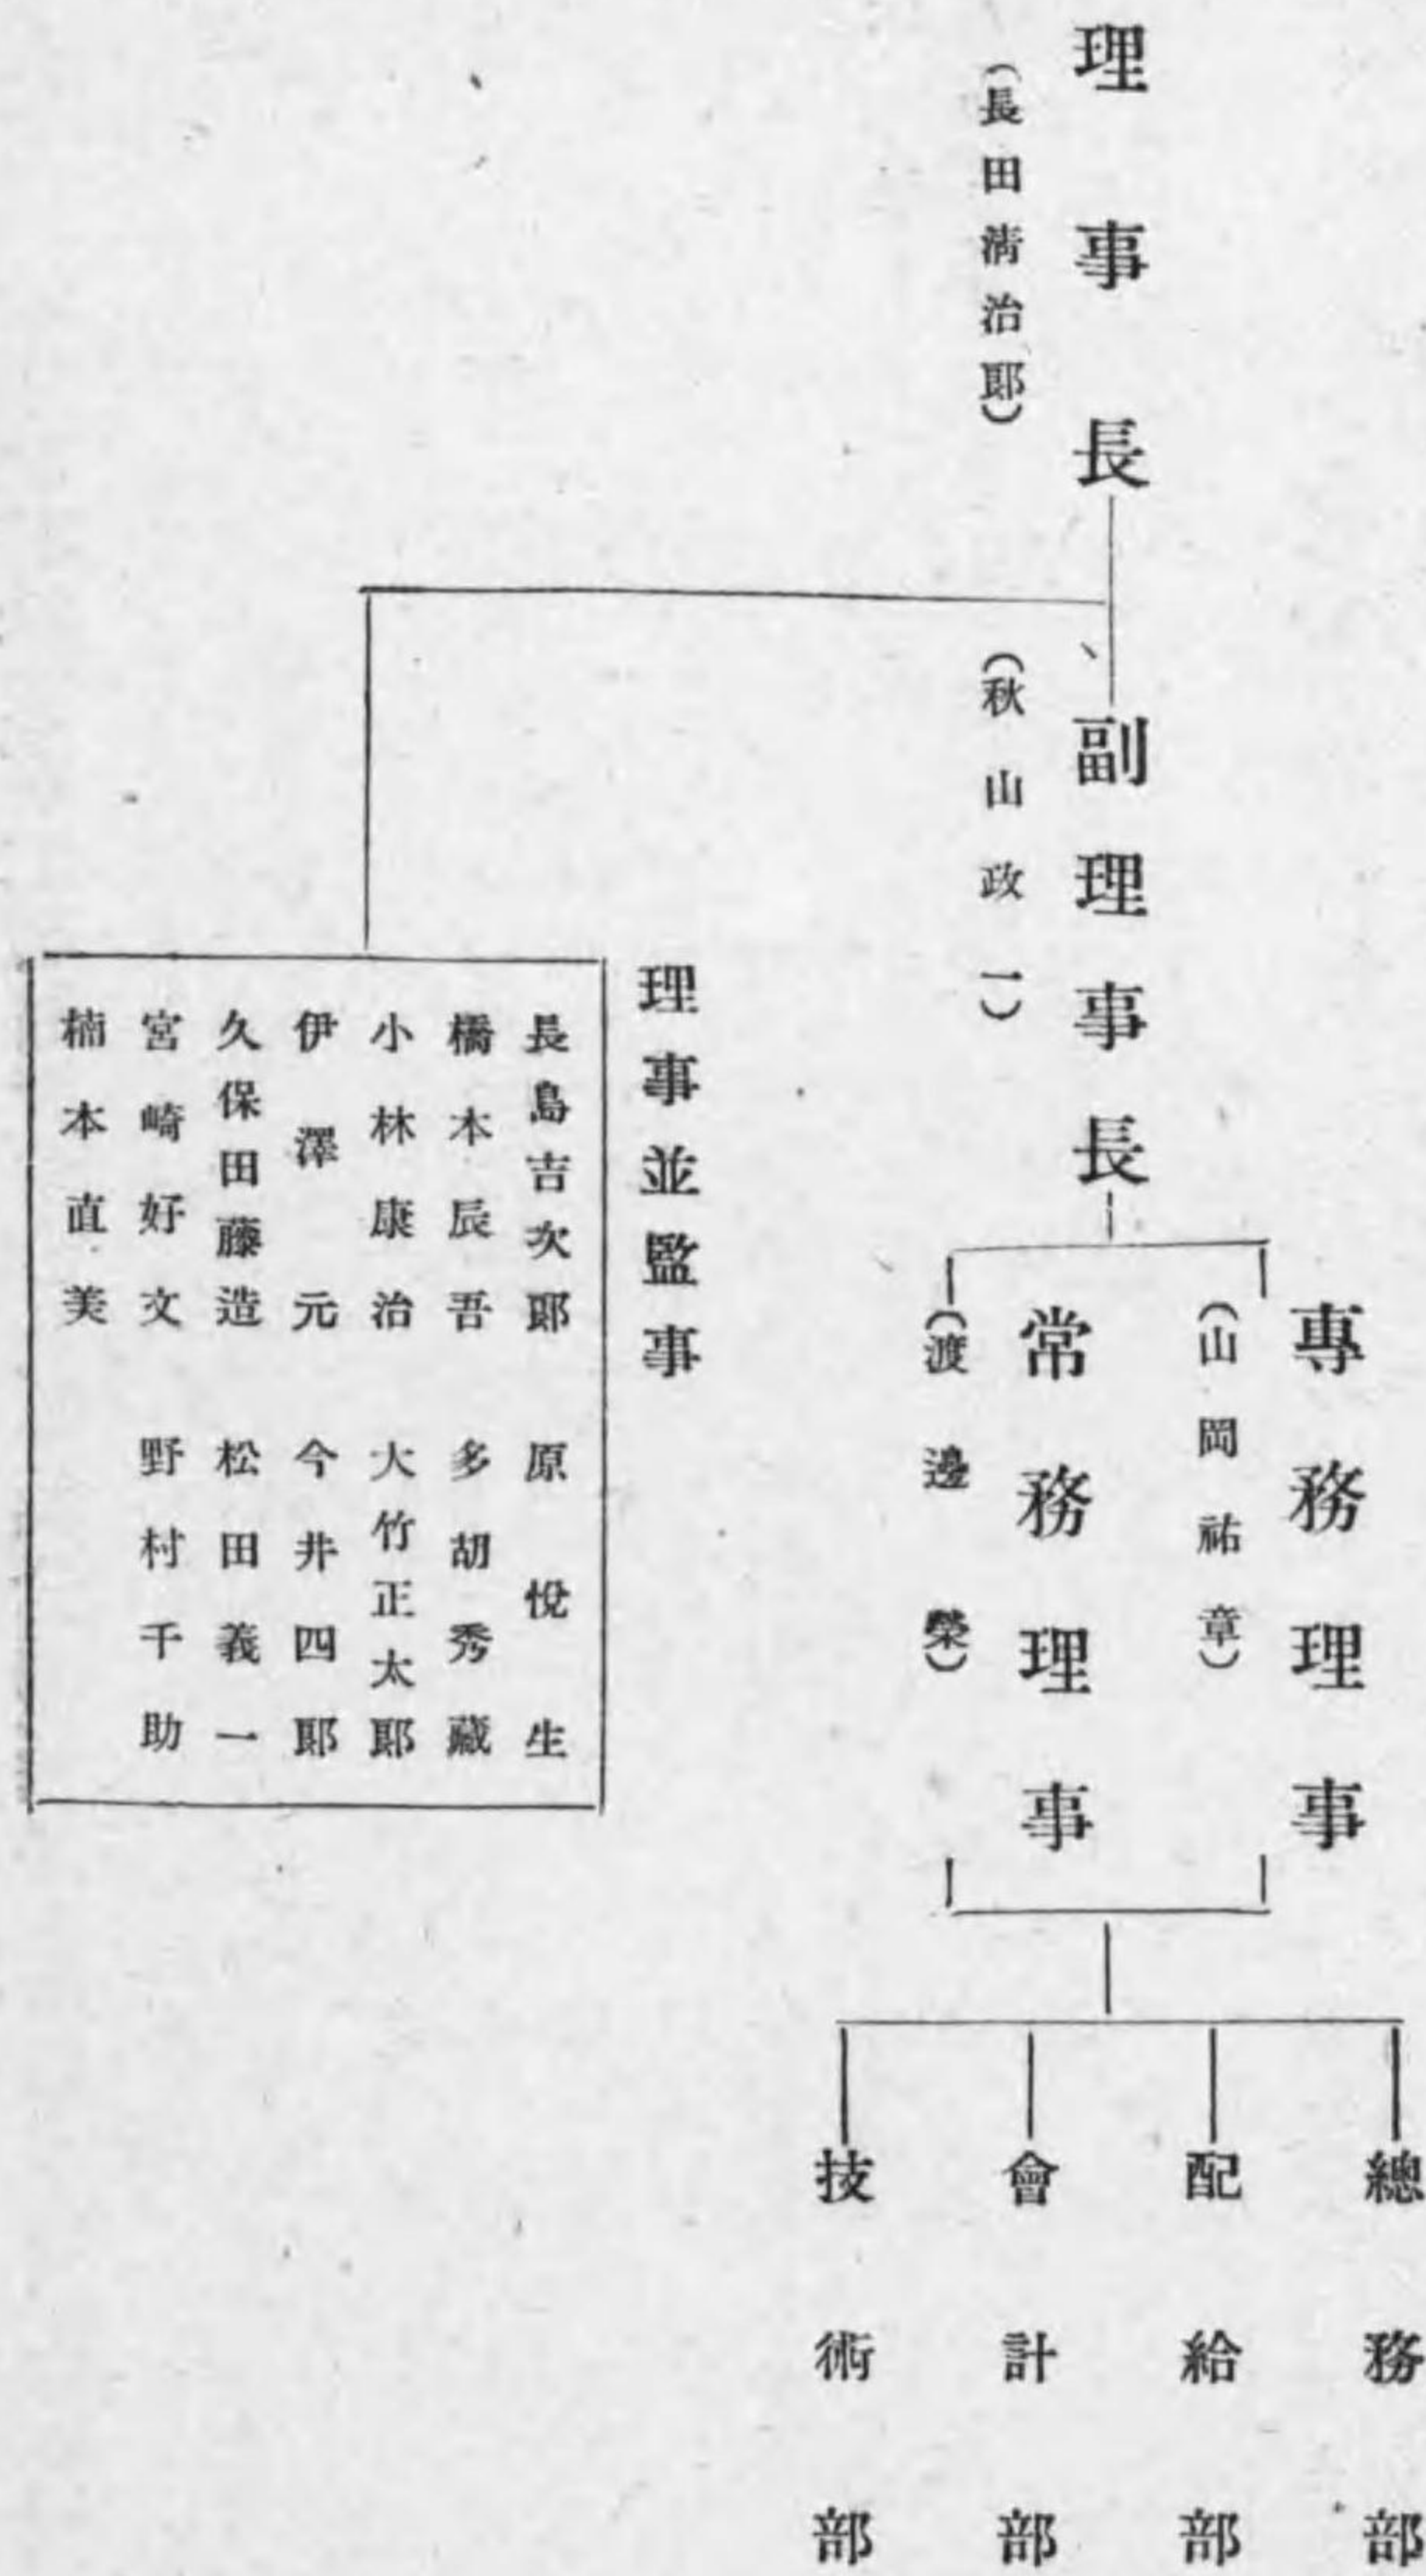 理事長
（長田淸治郞）
副理事長
（秋山政一）
專務理事
（山岡祐章）
常務理事
（渡邊榮）
總務部
配給部
會計部
技術部
理事並監事
長島吉次郞　原悅生
橋本辰吾　多胡秀藏
小林康治　大竹正太郞
伊澤元　今井四郞
久保田藤造　松田義一
宮崎好文　野村千助
楠本直美